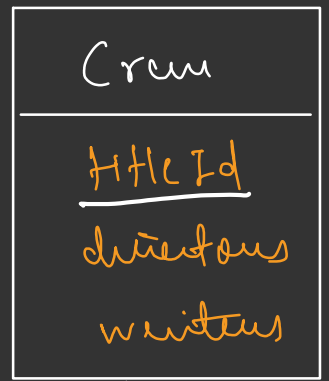 Crew
titleId
directors
writers